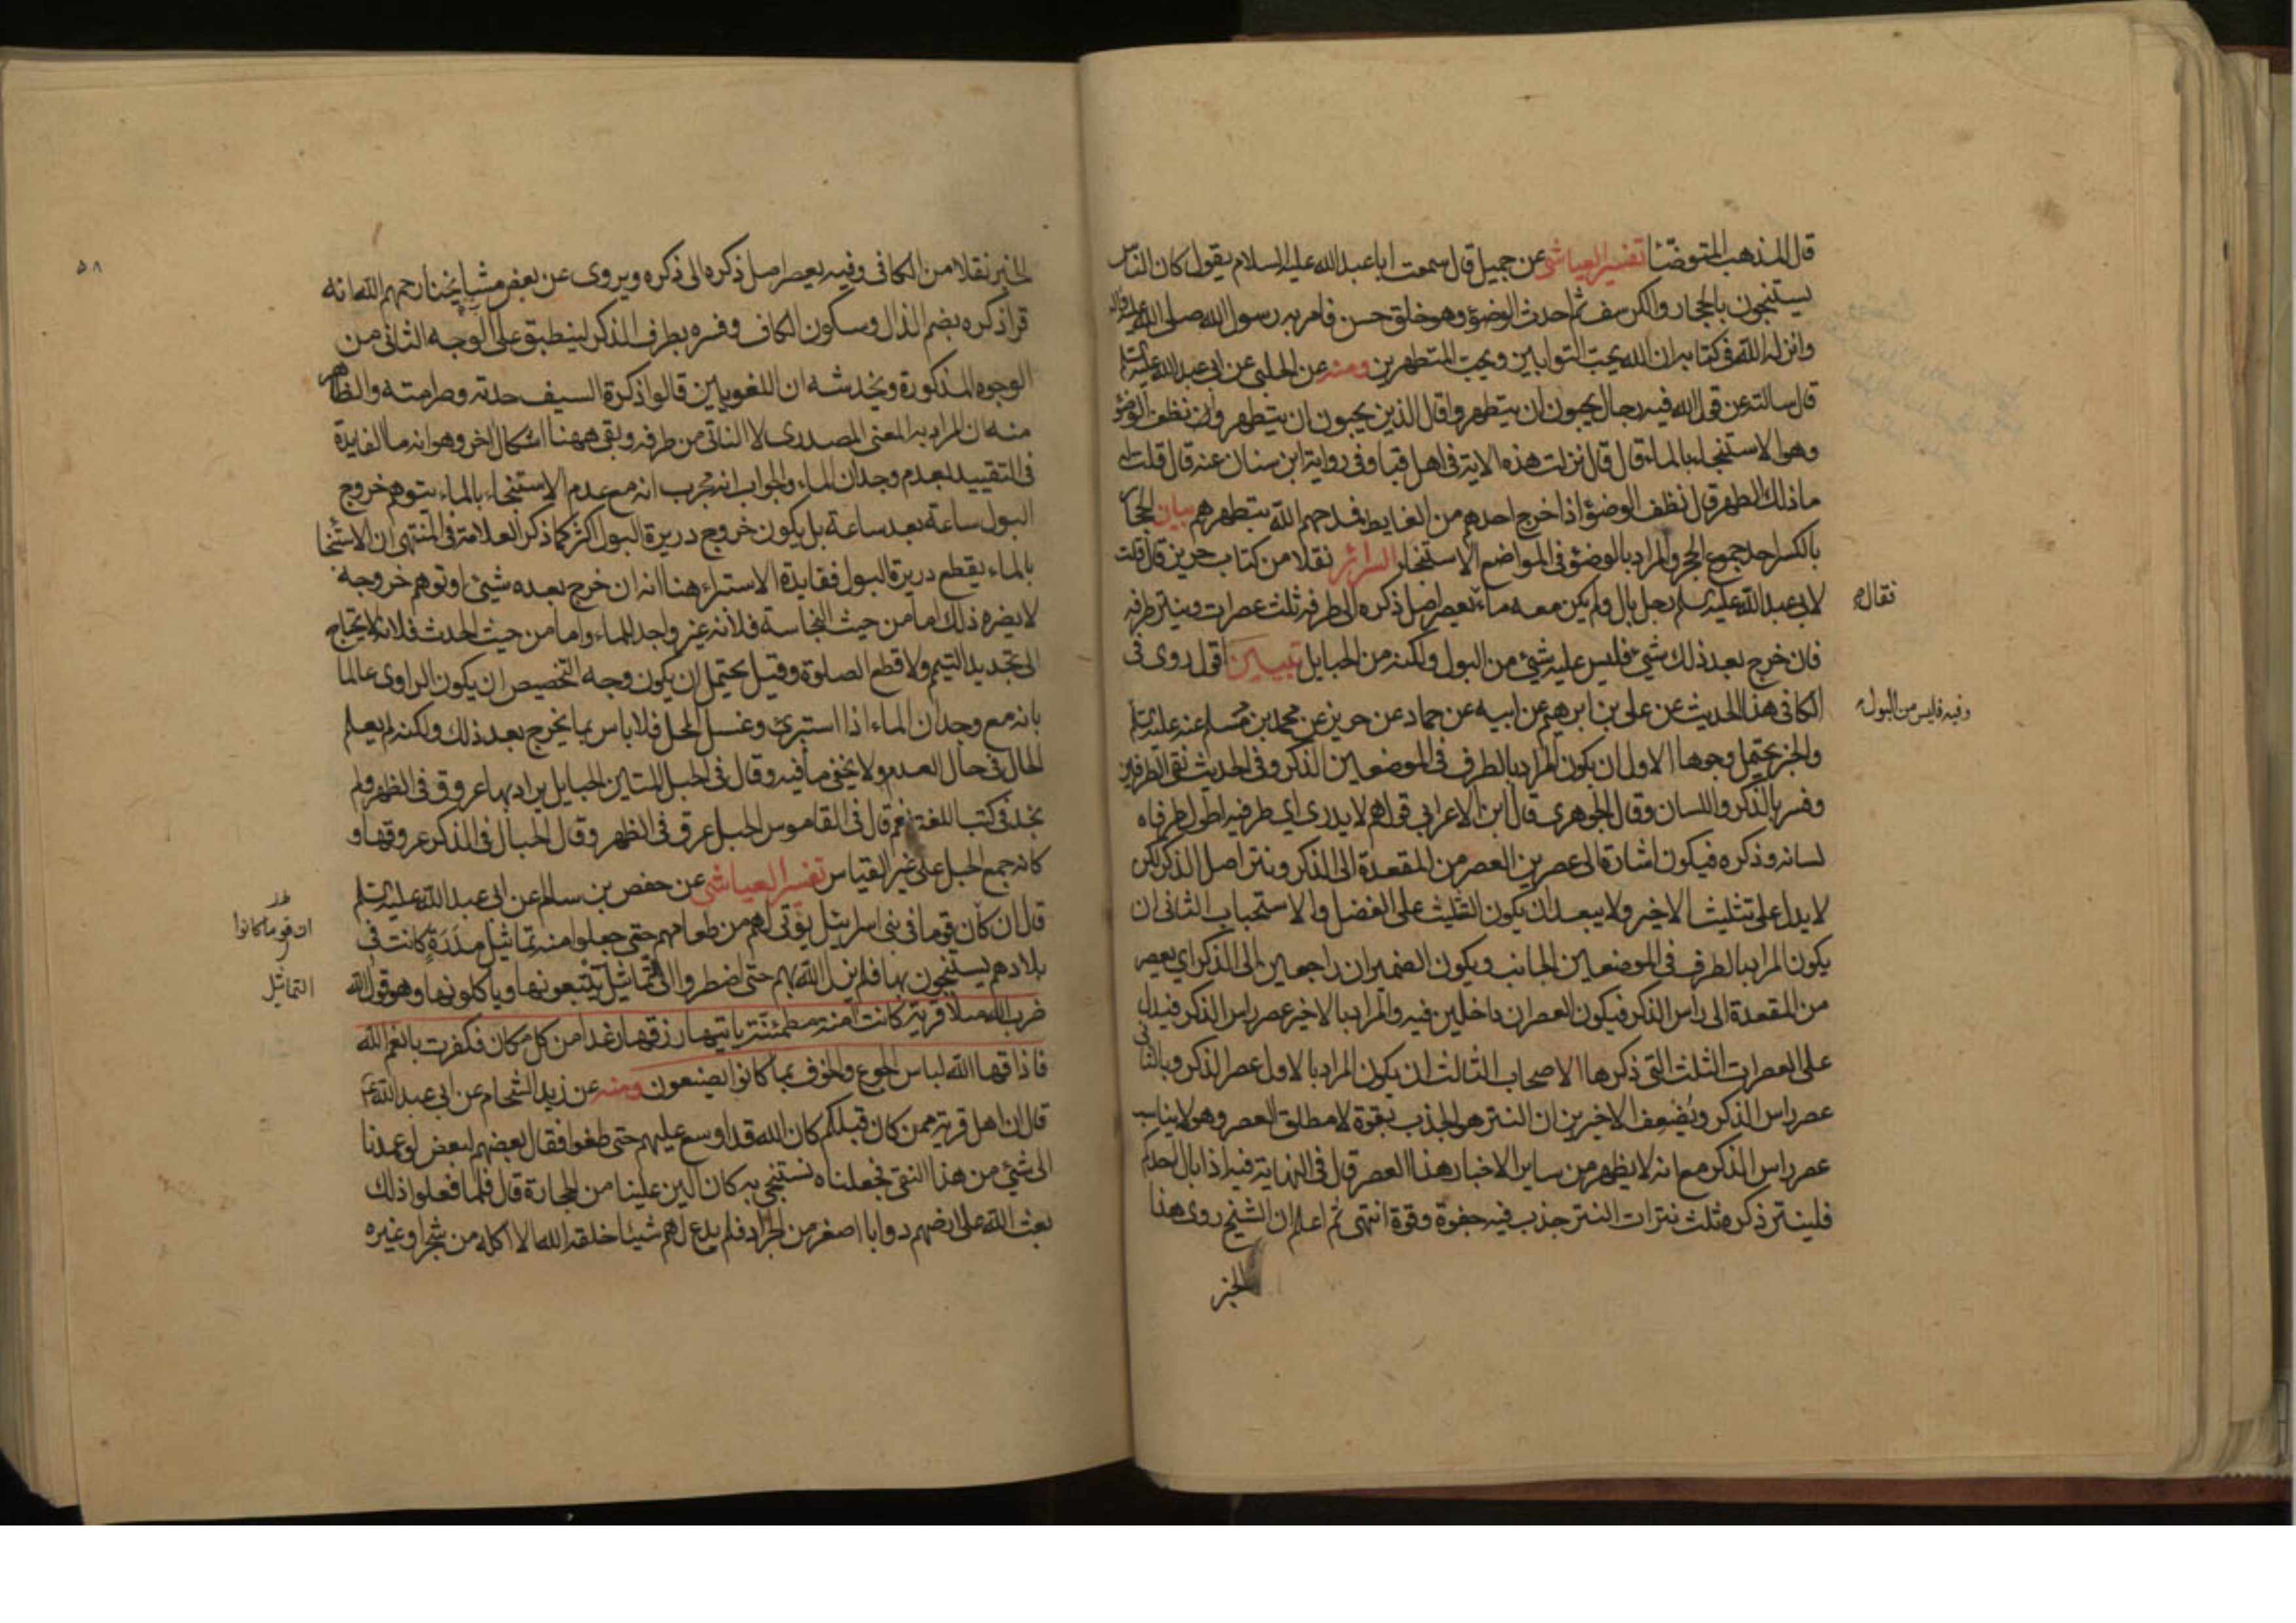 قال المذهب المتوضّئا تفسير العياشي عن جميل قال سمعت ابا عبد الله عليه السلام يقول كان الناس
يستنجون بالحجار والكرسف ثم احدث الوضؤ وهو خلق حسن فامر به رسول الله صلى الله عليه واله
وانزله الله في كتابه ان الله يحب التوابين ويحب المتطهرين ومنه عن الحلبي عن ابي عبد الله عليه السلم
قال سالته عن قول الله فيه رجال يحبون ان يتطهروا قال الذين يحبون ان يتطهروا نظف الوضؤ
وهو الاستنجاء بالماء قال قال نزلت هذه الاية في اهل قبا وفي رواية ابن سنان عنه قال قلت له
ما ذلك الطهر قال نظف الوضؤ اذا خرج احدهم من الغايط فمدحهم الله بتطهرهم بيان الحجار
بالكسر احد جموع الحجر والمراد بالوضؤ في المواضع الاستنجا السرائر نقلا من كتاب حريز قال قلت
لابي عبد الله عليه السلم رجل بال ولم يكن معه ماء يعصر اصل ذكره الى طرفه ثلث عصرات وينتر طرفه
نقاله
فان خرج بعد ذلك شيء فليس عليه شيء من البول ولكنه من الحبايل تبيين اقول روى في
الكافي هذا الحديث عن علي بن ابرهيم عن ابيه عن حماد عن حريز عن محمد بن مسلم عنه عليه السلم
وفيه فليس من البول
والخبر يحتمل وجوها الاول ان يكون المراد بالطرف في الموضعين الذكر وفي الحديث نقي الطرفين
وفسر بالذكر واللسان وقال الجوهري قال ابن الاعرابي قولهم لا يدري اي طرفيه اطول طرفاه
لسانه وذكره فيكون اشارة الى عصرين العصر من المقعدة الى الذكر ونتر اصل الذكر لكن
لا يدل على تثليث الاخير ولا يبعد ان يكون التثليث على الفضل والاستحباب الثاني ان
يكون المراد بالطرف في الموضعين الجانب ويكون الضميران راجعين الى الذكر اي يعصر
من المقعدة الى راس الذكر فيكون العصران داخلين فيه والمراد بالاخير عصر راس الذكر فيدل
على العصرات الثلث التي ذكرها الاصحاب الثالث ان يكون المراد بالاول عصر الذكر وبالثاني
عصر راس الذكر ويضعف الاخيرين ان النتر هو الجذب بقوة لا مطلق العصر وهو لا يناسب
عصر راس الذكر مع انه لا يظهر من ساير الاخبار هذا العصر قال في النهاية فيه اذا بال احدكم
فلينتر ذكره ثلث نترات النتر جذب فيه جفوة وقوة انتهى ثم اعلم ان الشيخ روى هذا
الخبر
٥٨
الخبر نقلا من الكافي وفيه يعصر اصل ذكره الى ذكره ويروى عن بعض مشايخنا رحمهم الله انه
قرا ذكره بضم الذال وسكون الكاف وفسره بطرف الذكر لينطبق على الوجه الثاني من
الوجوه المذكورة ويخدشه ان اللغويين قالوا ذكرة السيف حدته وصرامته والظاهر
منه ان المراد به المعنى المصدري لا الناتي من طرفه وبقي ههنا اشكال اخر وهو انه ما الفايدة
في التقييد بعدم وجدان الماء والجواب انه مجرب انه مع عدم الاستنجاء بالماء يتوهم خروج
البول ساعة بعد ساعة بل يكون خروج دريرة البول اكثر كما ذكر العلامة في المنتهى ان الاستنجا
بالماء يقطع دريرة البول ففايدة الاستبراء هنا انه ان خرج بعده شيئ او توهم خروجه
لا يضره ذلك اما من حيث النجاسة فلانه غير واجد للماء واما من حيث الحدث فلانه لا يحتاج
الى تجديد التيمم ولا قطع الصلوة وقيل يحتمل ان يكون وجه التخصيص ان يكون الراوي عالما
بانه مع وجدان الماء اذا استبرئ وغسل المحل فلا باس بما يخرج بعد ذلك ولكنه لم يعلم
الحال في حال العدم ولا يخفى ما فيه وقال في الحبل المتين الحبايل يراد بها عروق في الظهر ولم
نجد في كتب اللغة نعم قال في القاموس الحبل عرق في الظهر وقال الحبال في الذكر عروقها و
كانه جمع الحبل على غير القياس تفسير العياشي عن حفص بن سالم عن ابي عبد الله عليه السلم
قال ان كان قوما في بني اسرائيل يؤتى لهم من طعامهم حتى جعلوا منه تماثيل مددة كانت في
ان قوما كانوا
بلادهم يستنجون بها فلم يزل الله بهم حتى اضطروا الى التماثيل يتبعونها وياكلونها وهو قول الله
التماثيل
ضرب الله مثلا قرية كانت امنة مطمئنة ياتيها رزقها رغدا من كل مكان فكفرت بانعم الله
فاذاقها الله لباس الجوع والخوف بما كانوا يصنعون ومنه عن زيد الشحام عن ابي عبد الله ع
قال ان اهل قرية ممن كان قبلكم كان الله قد اوسع عليهم حتى طغوا فقال بعضهم لبعض لو عمدنا
الى شيئ من هذا النقي فجعلناه نستنجي به كان الين علينا من الحجارة قال فلما فعلوا ذلك
بعث الله على ارضهم دوابا اصغر من الجراد فلم يدع لهم شيئا خلقه الله الا اكله من شجر او غيره